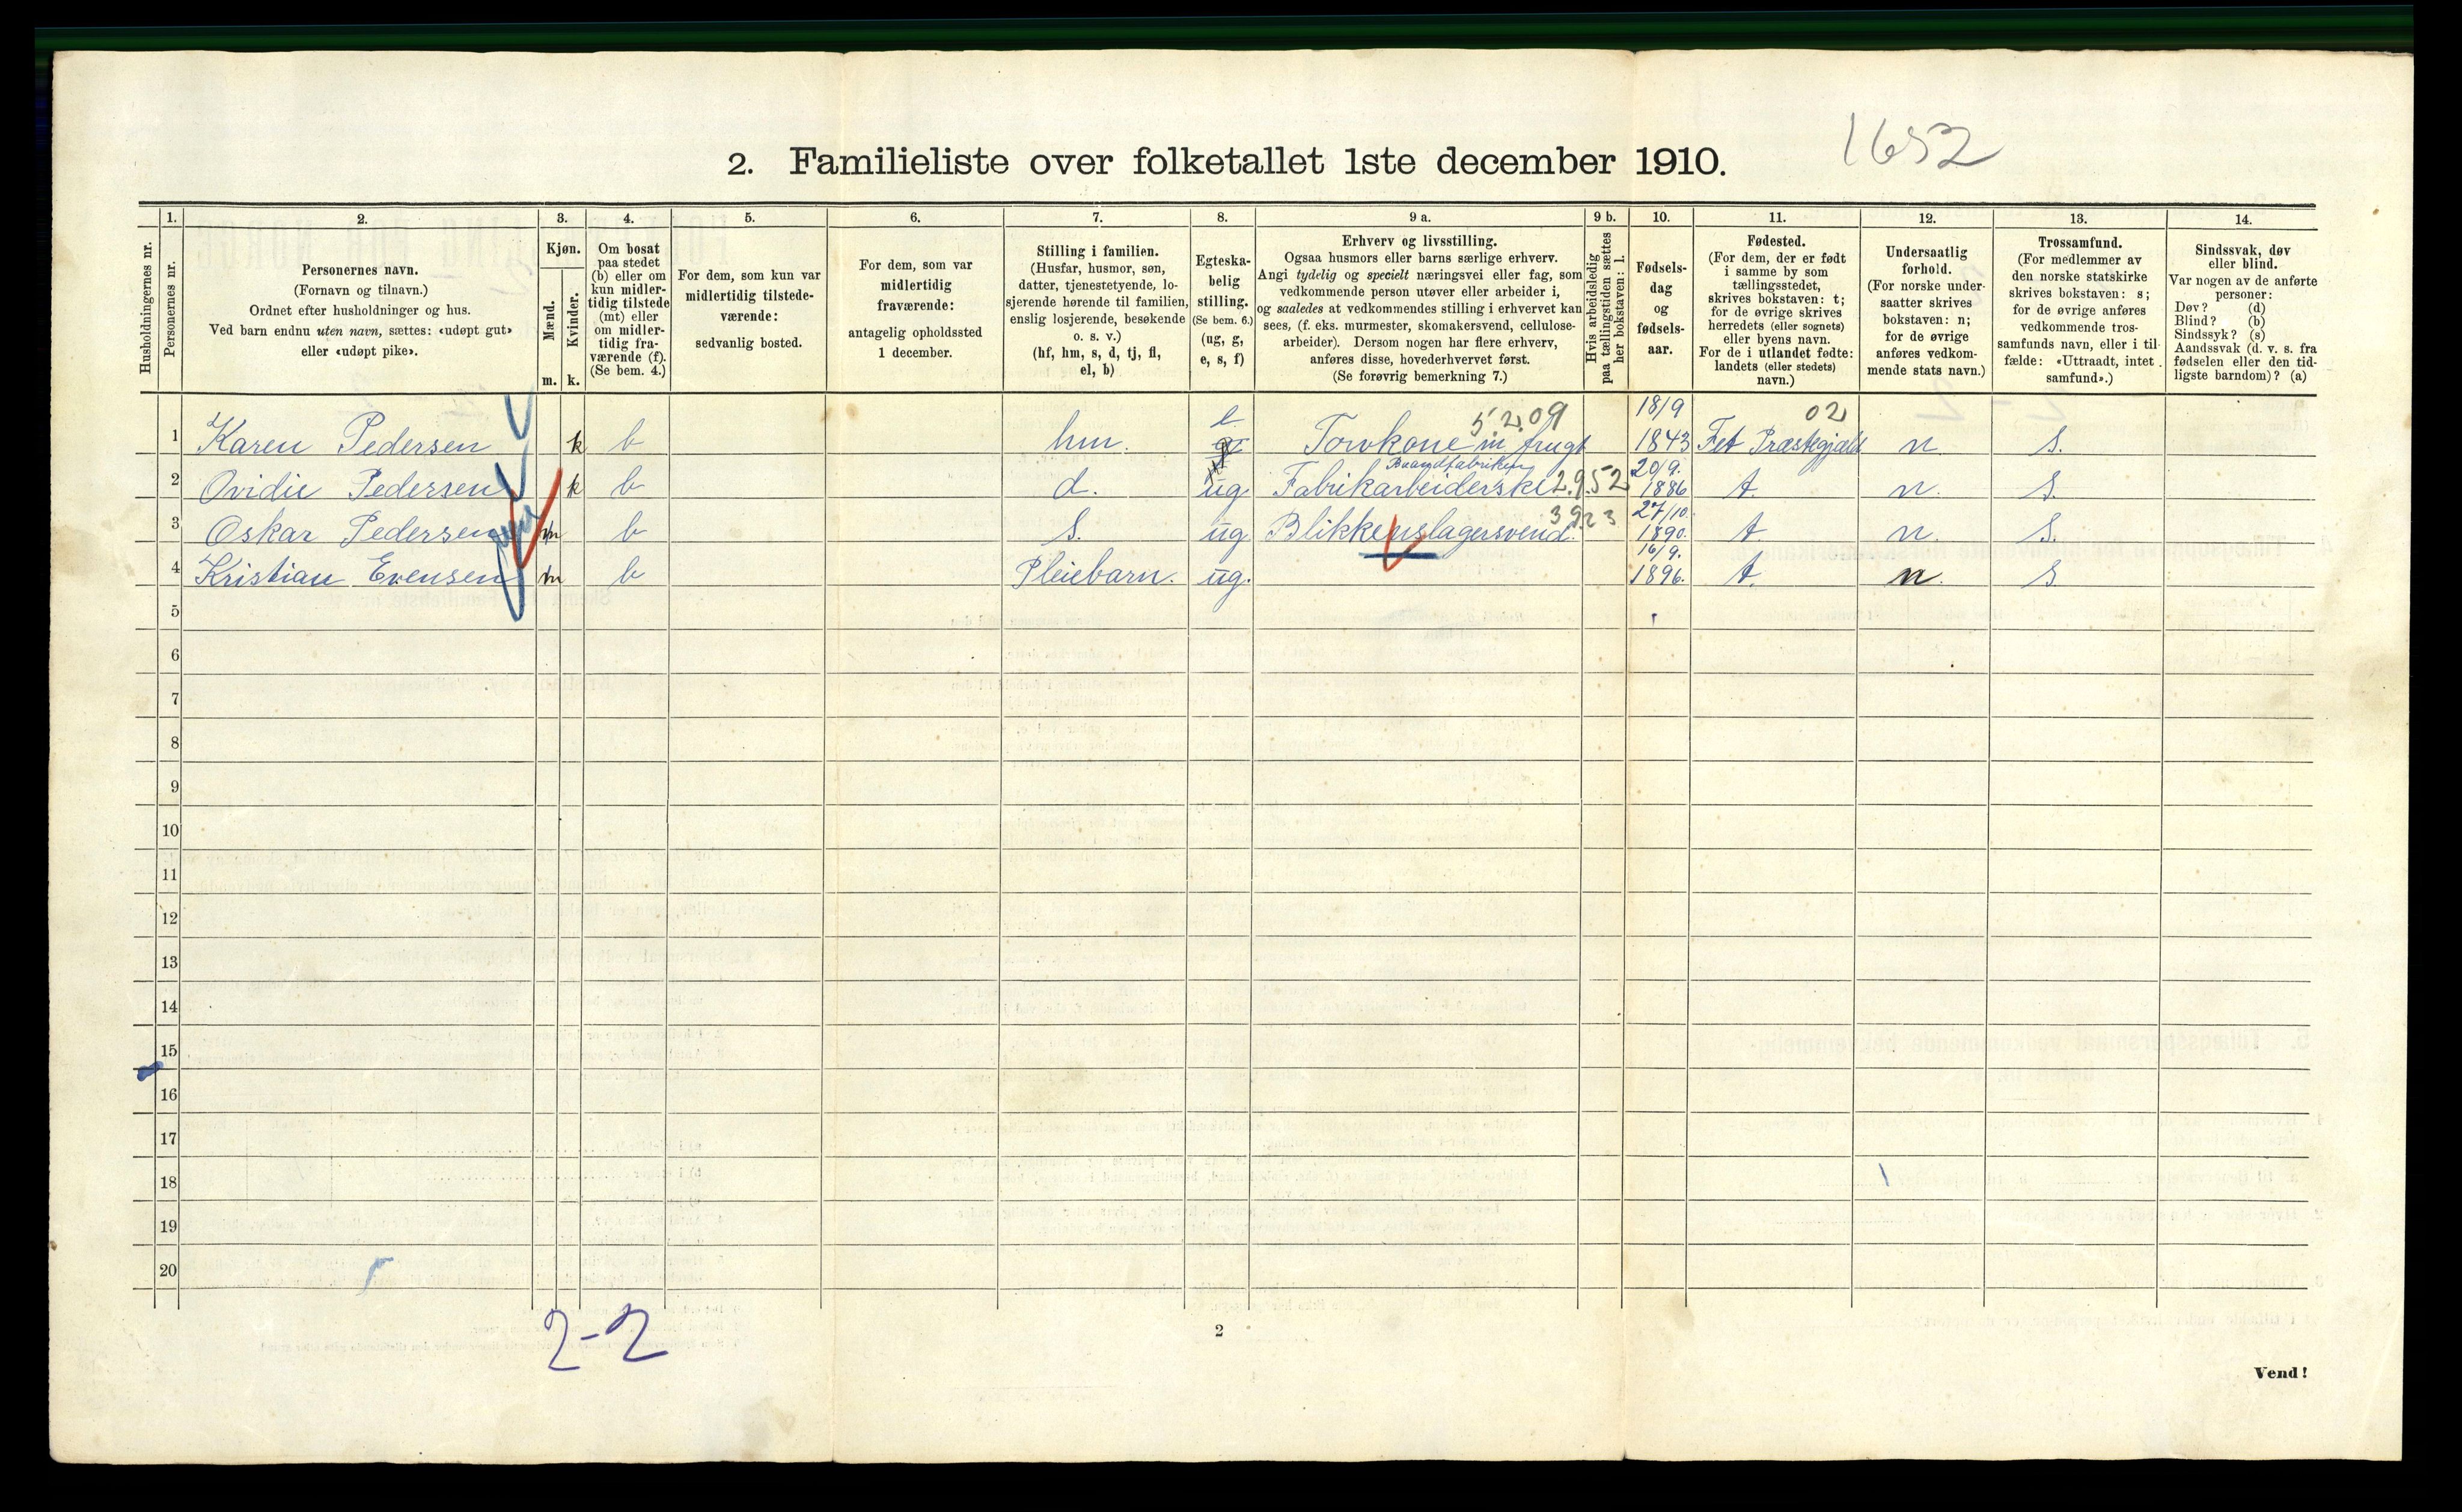 1652
2. Familieliste over folketallet 1ste december 1910.
1. 2. 3. 4. 5. 6. 7. 8. 9 a. 9 b. 10. 11. 12. 13. 14.
Husholdningernes nr.
Personernes nr.
Personernes navn.
(Fornavn og tilnavn.)
Ordnet efter husholdninger og hus.
Ved barn endnu uten navn, sættes: «udøpt gut»
eller «udøpt pike».
Kjøn.
Mænd.
Kvinder.
m. k.
Om bosat
paa stedet
(b) eller om
kun midler-
tidig tilstede
(mt) eller
om midler-
tidig fra-
værende (f).
(Se bem. 4.)
For dem, som kun var
midlertidig tilstede-
værende:
sedvanlig bosted.
For dem, som var
midlertidig
fraværende:
antagelig opholdssted
1 december.
Stilling i familien.
(Husfar, husmor, søn,
datter, tjenestetyende, lo-
sjerende hørende til familien,
enslig losjerende, besøkende
o. s. v.)
(hf, hm, s, d, tj, fl,
el, b)
Egteska-
belig
stilling.
(Se bem. 6.)
(ug, g,
e, s, f)
Erhverv og livsstilling.
Ogsaa husmors eller barns særlige erhverv.
Angi tydelig og specielt næringsvei eller fag, som
vedkommende person utøver eller arbeider i,
og saaledes at vedkommendes stilling i erhvervet kan
sees, (f. eks. murmester, skomakersvend, cellulose-
arbeider). Dersom nogen har flere erhverv,
anføres disse, hovederhvervet først.
(Se forøvrig bemerkning 7.)
Hvis arbeidsledig
paa tællingstiden sættes
her bokstaven: l.
Fødsels-
dag
og
fødsels-
aar.
Fødested.
(For dem, der er født
i samme by som
tællingsstedet,
skrives bokstaven: t;
for de øvrige skrives
herredets (eller sognets)
eller byens navn.
For de i utlandet fødte:
landets (eller stedets)
navn.)
Undersaatlig
forhold.
(For norske under-
saatter skrives
bokstaven: n;
for de øvrige
anføres vedkom-
mende stats navn.)
Trossamfund.
(For medlemmer av
den norske statskirke
skrives bokstaven: s;
for de øvrige anføres
vedkommende tros-
samfunds navn, eller i til-
fælde: «Uttraadt, intet
samfund».)
Sindssvak, døv
eller blind.
Var nogen av de anførte
personer:
Døv? (d)
Blind? (b)
Sindssyk? (s)
Aandssvak (d. v. s. fra
fødselen eller den tid-
ligste barndom)? (a)
e 5.2.09 18/9 02
1 Karen Pedersen k b hm. Torvkone m frugt 1843 Fet Præstegjæld n s.
20/9.
2 Ovidie Pedersen k b d. ug Fabrikarbeiderske 2.9.52 1886 t. n. s.
3923 27/10.
3 Oskar Pedersen m b s. ug Blikkenslagersvend. 1890. t n. s.
16/9.
4 Kristian Evensen m b Pleiebarn. ug. 1896. t. n. s
5
6
7
8
9
10
11
12
13
14
15
16
17
18
19
20
2-2
2
Vend!